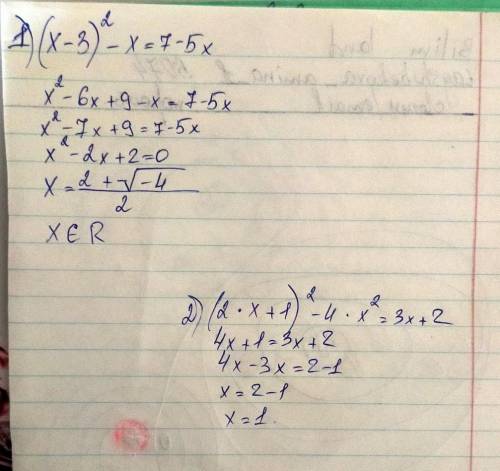 1) (x-3)² - x = 7-5x
x² - 6x + 9 - x = 7-5x
x² - 7x + 9 = 7-5x
x² - 2x + 2 = 0
x = (2 + √-4) / 2
x ∈ R
2) (2 · x + 1)² - 4 · x² = 3x + 2
4x + 1 = 3x + 2
4x - 3x = 2-1
x = 2-1
x = 1.